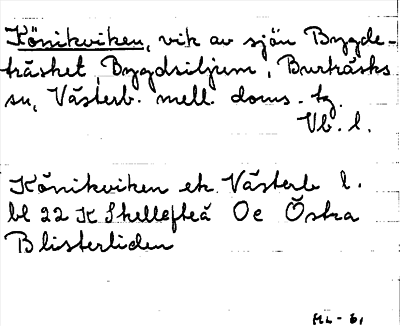 Könikviken, vik av sjön Bygde-
träsket Bygdsiljum, Burträsks
sn, Västerb. mell. doms. tg.
Vb. l.
Könikviken ek Västerb l.
bl 22 K Skellefteå Oc Östra
Blisterliden
ML-61